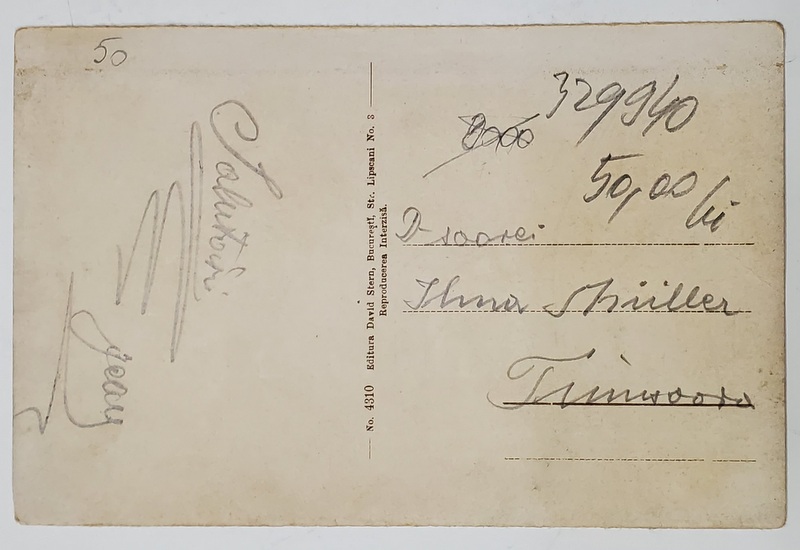 50
Salutări
Jean
No. 4310 Editura David Stern, Bucureştĭ, Str. Lipscani No. 8
Reproducerea Interzisă.
329940
50,00 lei
D-soarei
Ilma Müller
Timisoara